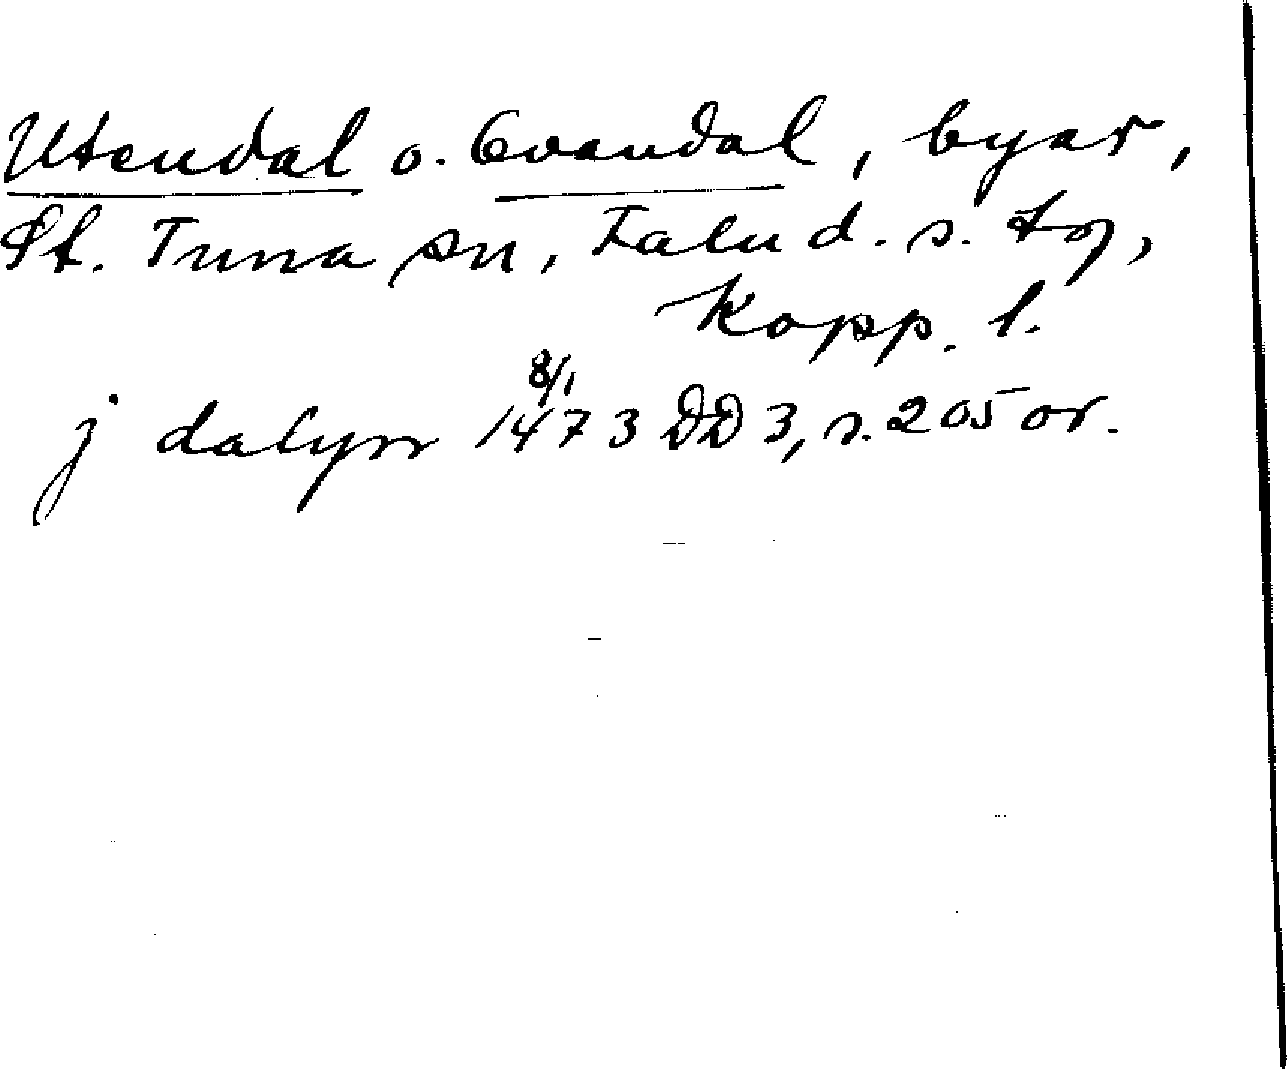 Utendal o. Ovandal, byar,
St. Tuna sn, Falu d. s. tg,
Kopp. l.
j dalynr 8/1 1473 DD 3, s. 205 or.